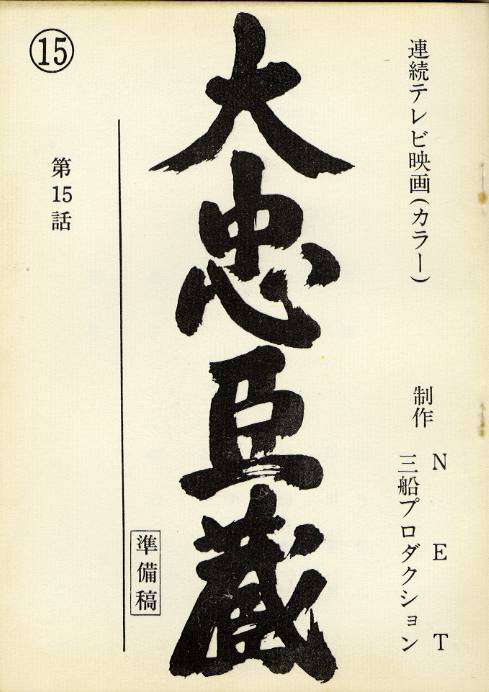 連続テレビ映画(カラー)
制作 NET
三船プロダクション
大忠臣蔵
準備稿
第15話
⑮